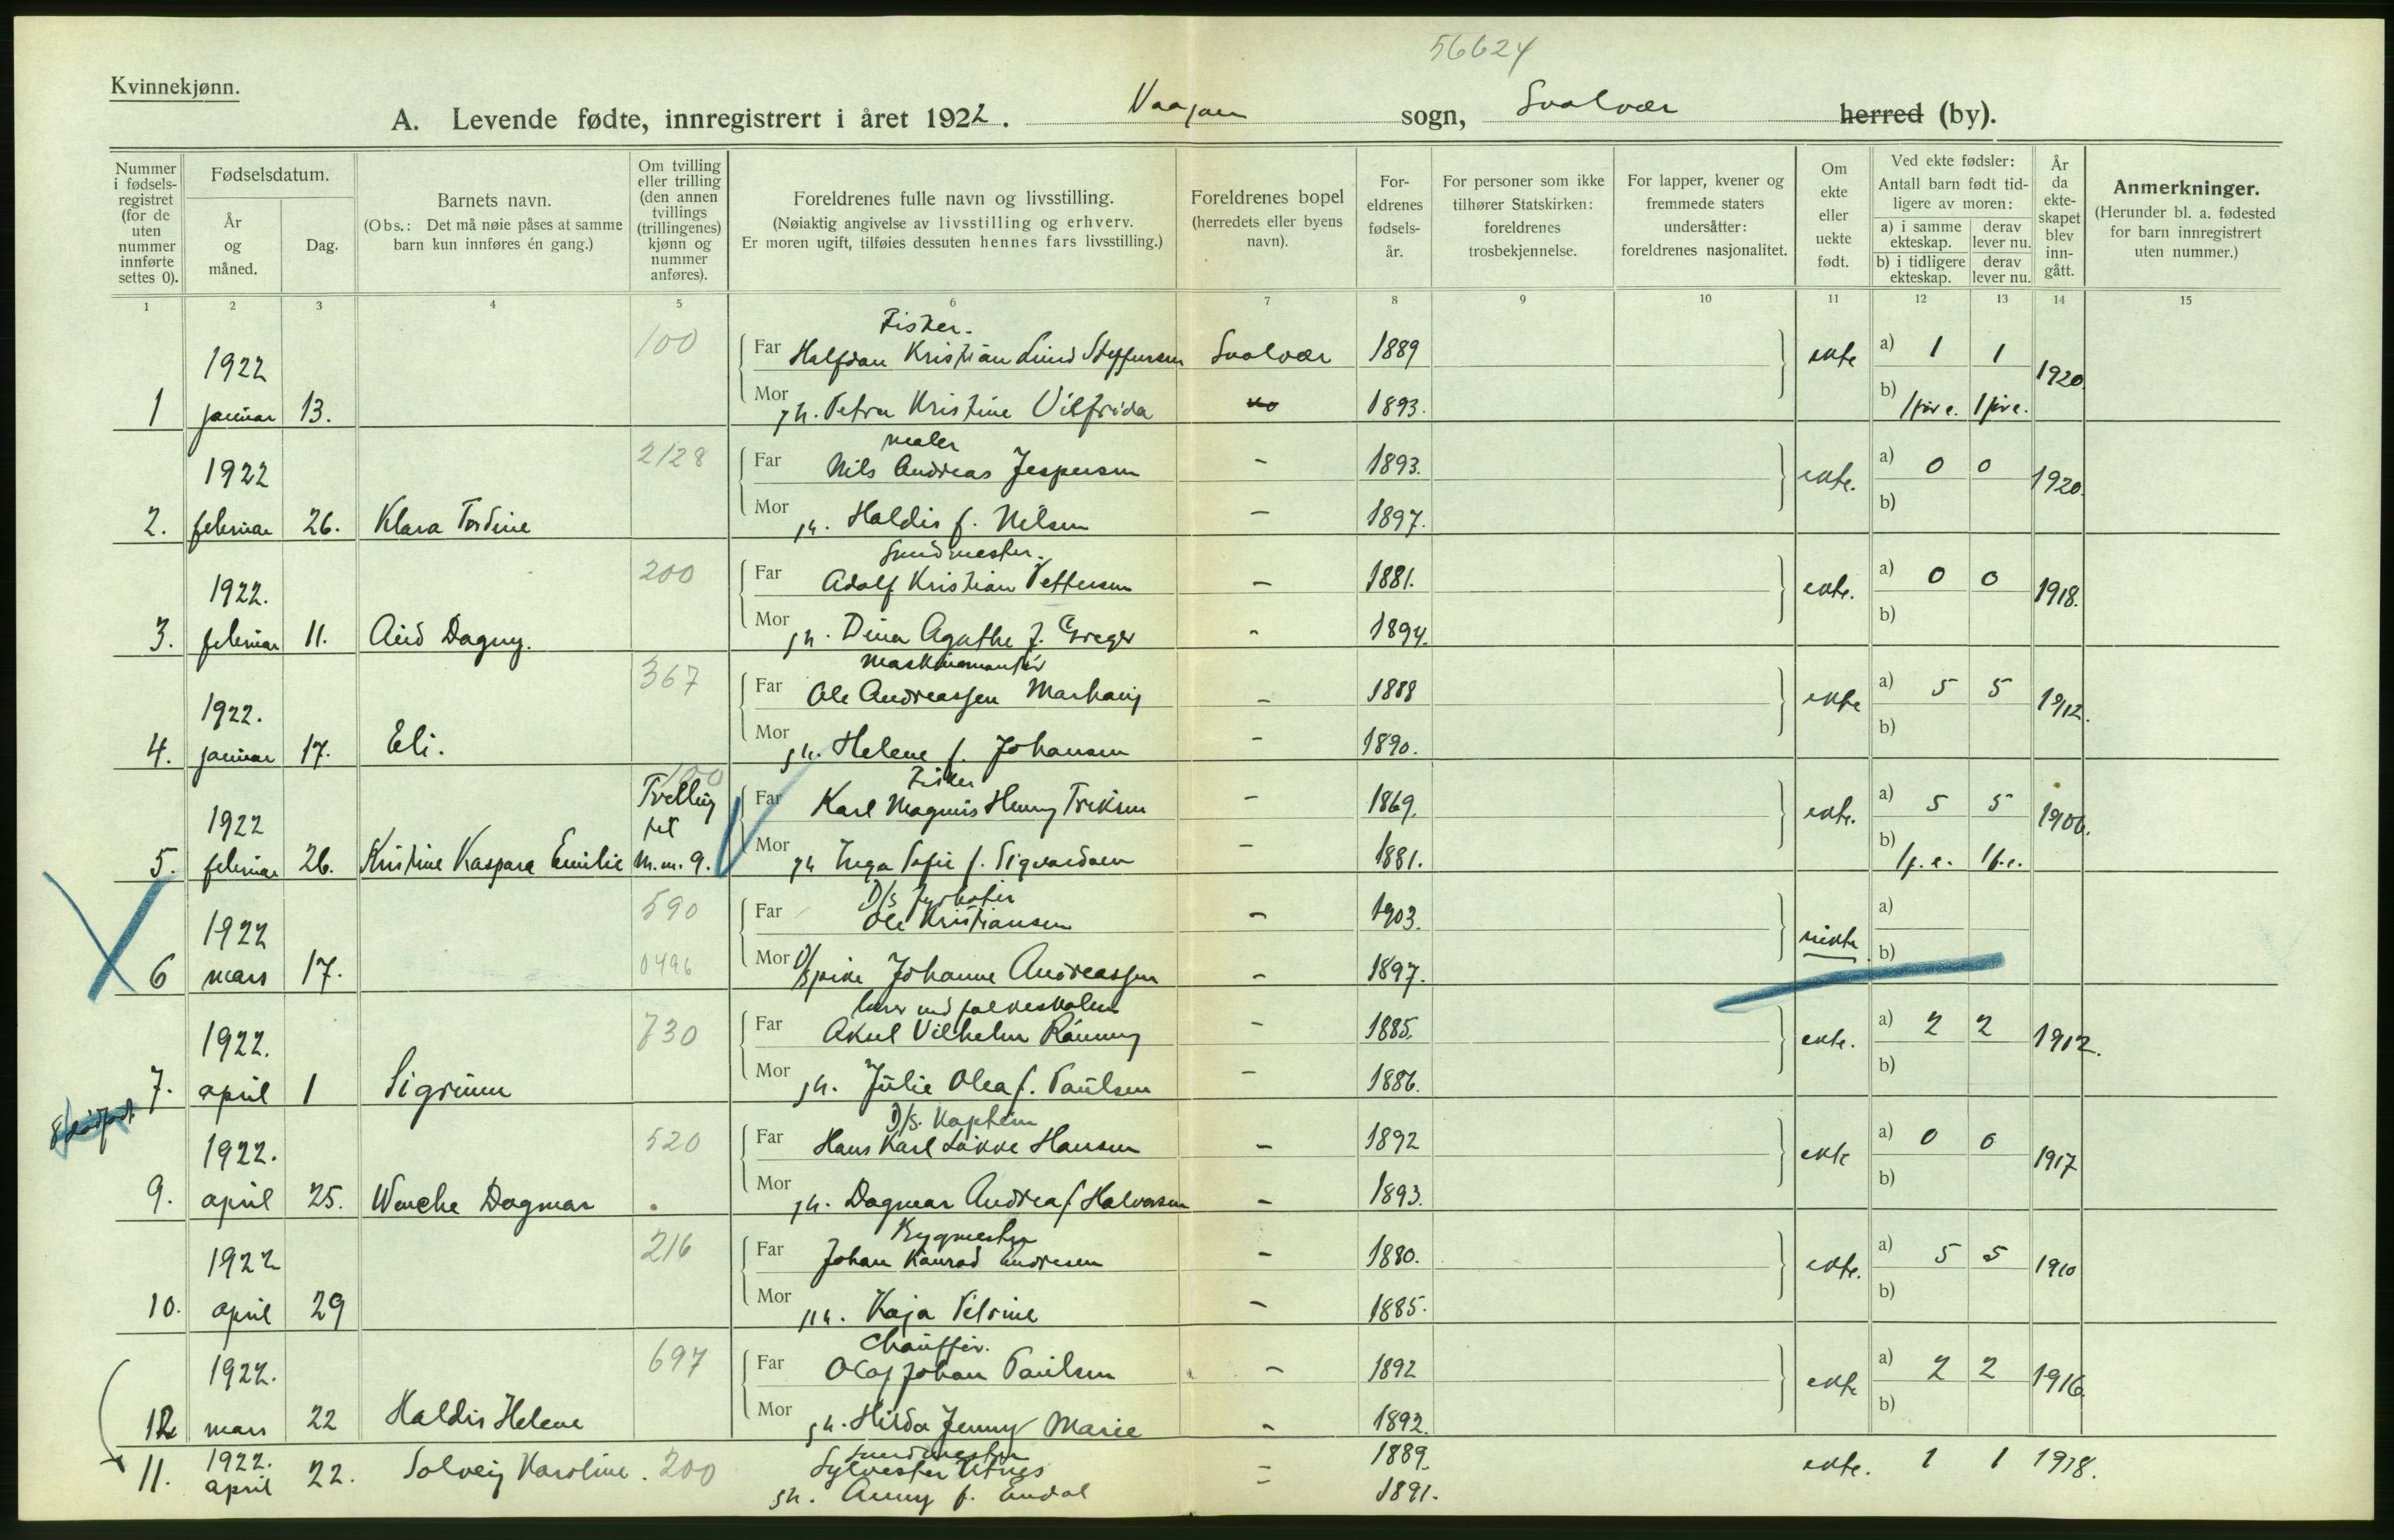 56624
Kvinnekjønn.
A. Levende fødte, innregistrert i året 1922. Vaagan sogn, Svolvær herred (by).
Nummer i fødselsregistret (for de uten nummer innførte settes 0).
Fødselsdatum.
År og måned.
Dag.
Barnets navn.
(Obs.: Det må nøie påses at samme barn kun innføres én gang.)
Om tvilling eller trilling (den annen tvillings (trillingenes) kjønn og nummer anføres).
Foreldrenes fulle navn og livsstilling.
(Nøiaktig angivelse av livsstilling og erhverv.
Er moren ugift, tilføies dessuten hennes fars livsstilling.)
Foreldrenes bopel (herredets eller byens navn).
Foreldrenes fødselsår.
For personer som ikke tilhører Statskirken: foreldrenes trosbekjennelse.
For lapper, kvener og fremmede staters undersåtter: foreldrenes nasjonalitet.
Om ekte eller uekte født.
Ved ekte fødsler: Antall barn født tidligere av moren:
a) i samme ekteskap. derav lever nu.
b) i tidligere ekteskap. derav lever nu.
År da ekteskapet blev inngått.
Anmerkninger.
(Herunder bl. a. fødested for barn innregistrert uten nummer.)
1 2 3 4 5 6 7 8 9 10 11 12 13 14 15
100 Fisker.
1922 Far Halfdan Kristian Lund Steffensen Svolvær 1889 ekte a) 1 1 1920.
1 januar 13. Mor h. Petra Kristine Vilfrida 1893. b) 1 før e. 1 før e.
2128 maler
1922 Far Nils Andreas Jespersen - 1893. ekte. a) 0 0 1920.
2. februar 26. Klara Tordine Mor h. Haldis f. Nilsen - 1897. b)
200
1922. Far Adolf Kristian Pettersen - 1881. ekte. a) 0 0 1918.
3. februar 11. Aud Dagny. Mor h. Dina Agathe f. Greger - 1894. b)
367 maskinmontør
1922. Far Ole Andreassen Marhaug - 1888 ekte a) 5 5 1912.
4. januar 17. Eli. Mor h. Helene f. Johansen - 1890. b)
100 Tvilling Fisker
1922 til Far Karl Magnus Henry - 1869. ekte. a) 5 5 1906.
5. februar 26. Kristine Kaspara Emilie M. m. 9. Mor h Inga Sofie f. Sigvardsen - 1881. b) 1 f. e. 1 f. e.
590 D/s fyrbøter
1922 Far Ole Kristiansen - 1903. uekte a)
6 mars 17. 0496 Mor pike Johanne Andreassen - 1897. b)
730 lærer ved folkeskolen
1922. Far Aksel Vilhelm Rønning - 1885. ekte. a) 2 2 1912.
7. april 1 Sigrunn Mor h. Julie Olea f. Paulsen - 1886. b)
8 dødfødt
520 D/s. kaptein
1922. Far Hans Karl Løkke Hansen - 1892 ekte a) 0 0 1917
9. april 25. Wenche Dagmar Mor h. Dagmar Andrea f. Halvorsen - 1893. b)
216 Bygmester
1922 Far Johan Konrad Andresen - 1880. ekte. a) 5 5 1910
10. april 29 Mor h. Kaja Petrine - 1885. b)
697 Chauffør.
1922. Far Olaf Johan Paulsen - 1892 ekte a) 2 2 1916
12 mars 22 Haldis Helene Mor h. Hilda Jenny Marie - 1892. b)
11. 1922. april 22. Solveig Karoline. 200 Sylvester Utnes - 1889. ekte. 1 1 1918.
h. Anny f. Endal - 1891.